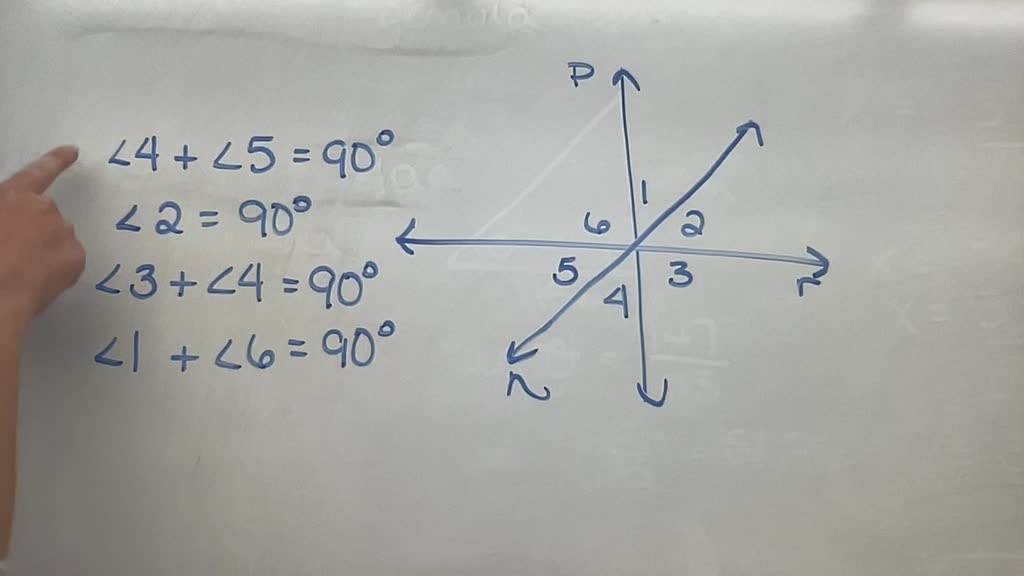 ∠4 + ∠5 = 90°
∠2 = 90°
∠3 + ∠4 = 90°
∠1 + ∠6 = 90°
P
1
6 2
5 3
4
r
n